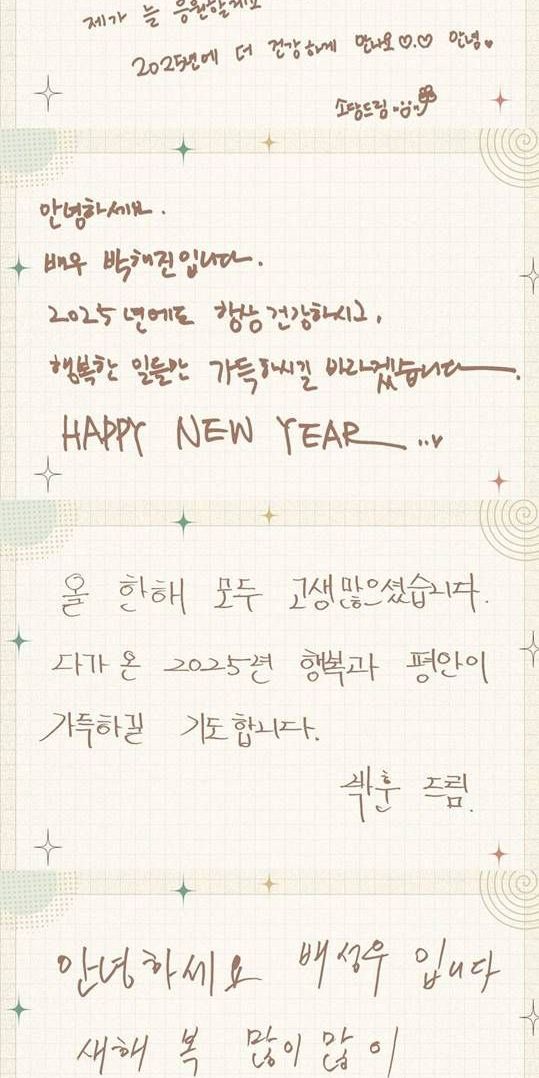 제가 늘 응원할게요
2025년에 더 건강하게 만나요♡.♡ 안녕♥
소담드림
안녕하세요.
배우 박해진입니다.
2025년에도 항상 건강하시고,
행복한 일들만 가득하시길 바라겠습니다.
HAPPY NEW YEAR ..♥
올 한해 모두 고생많으셨습니다.
다가온 2025년 행복과 평안이
가득하길 기도합니다.
박훈 드림.
안녕하세요 배성우 입니다
새해 복 많이 많이